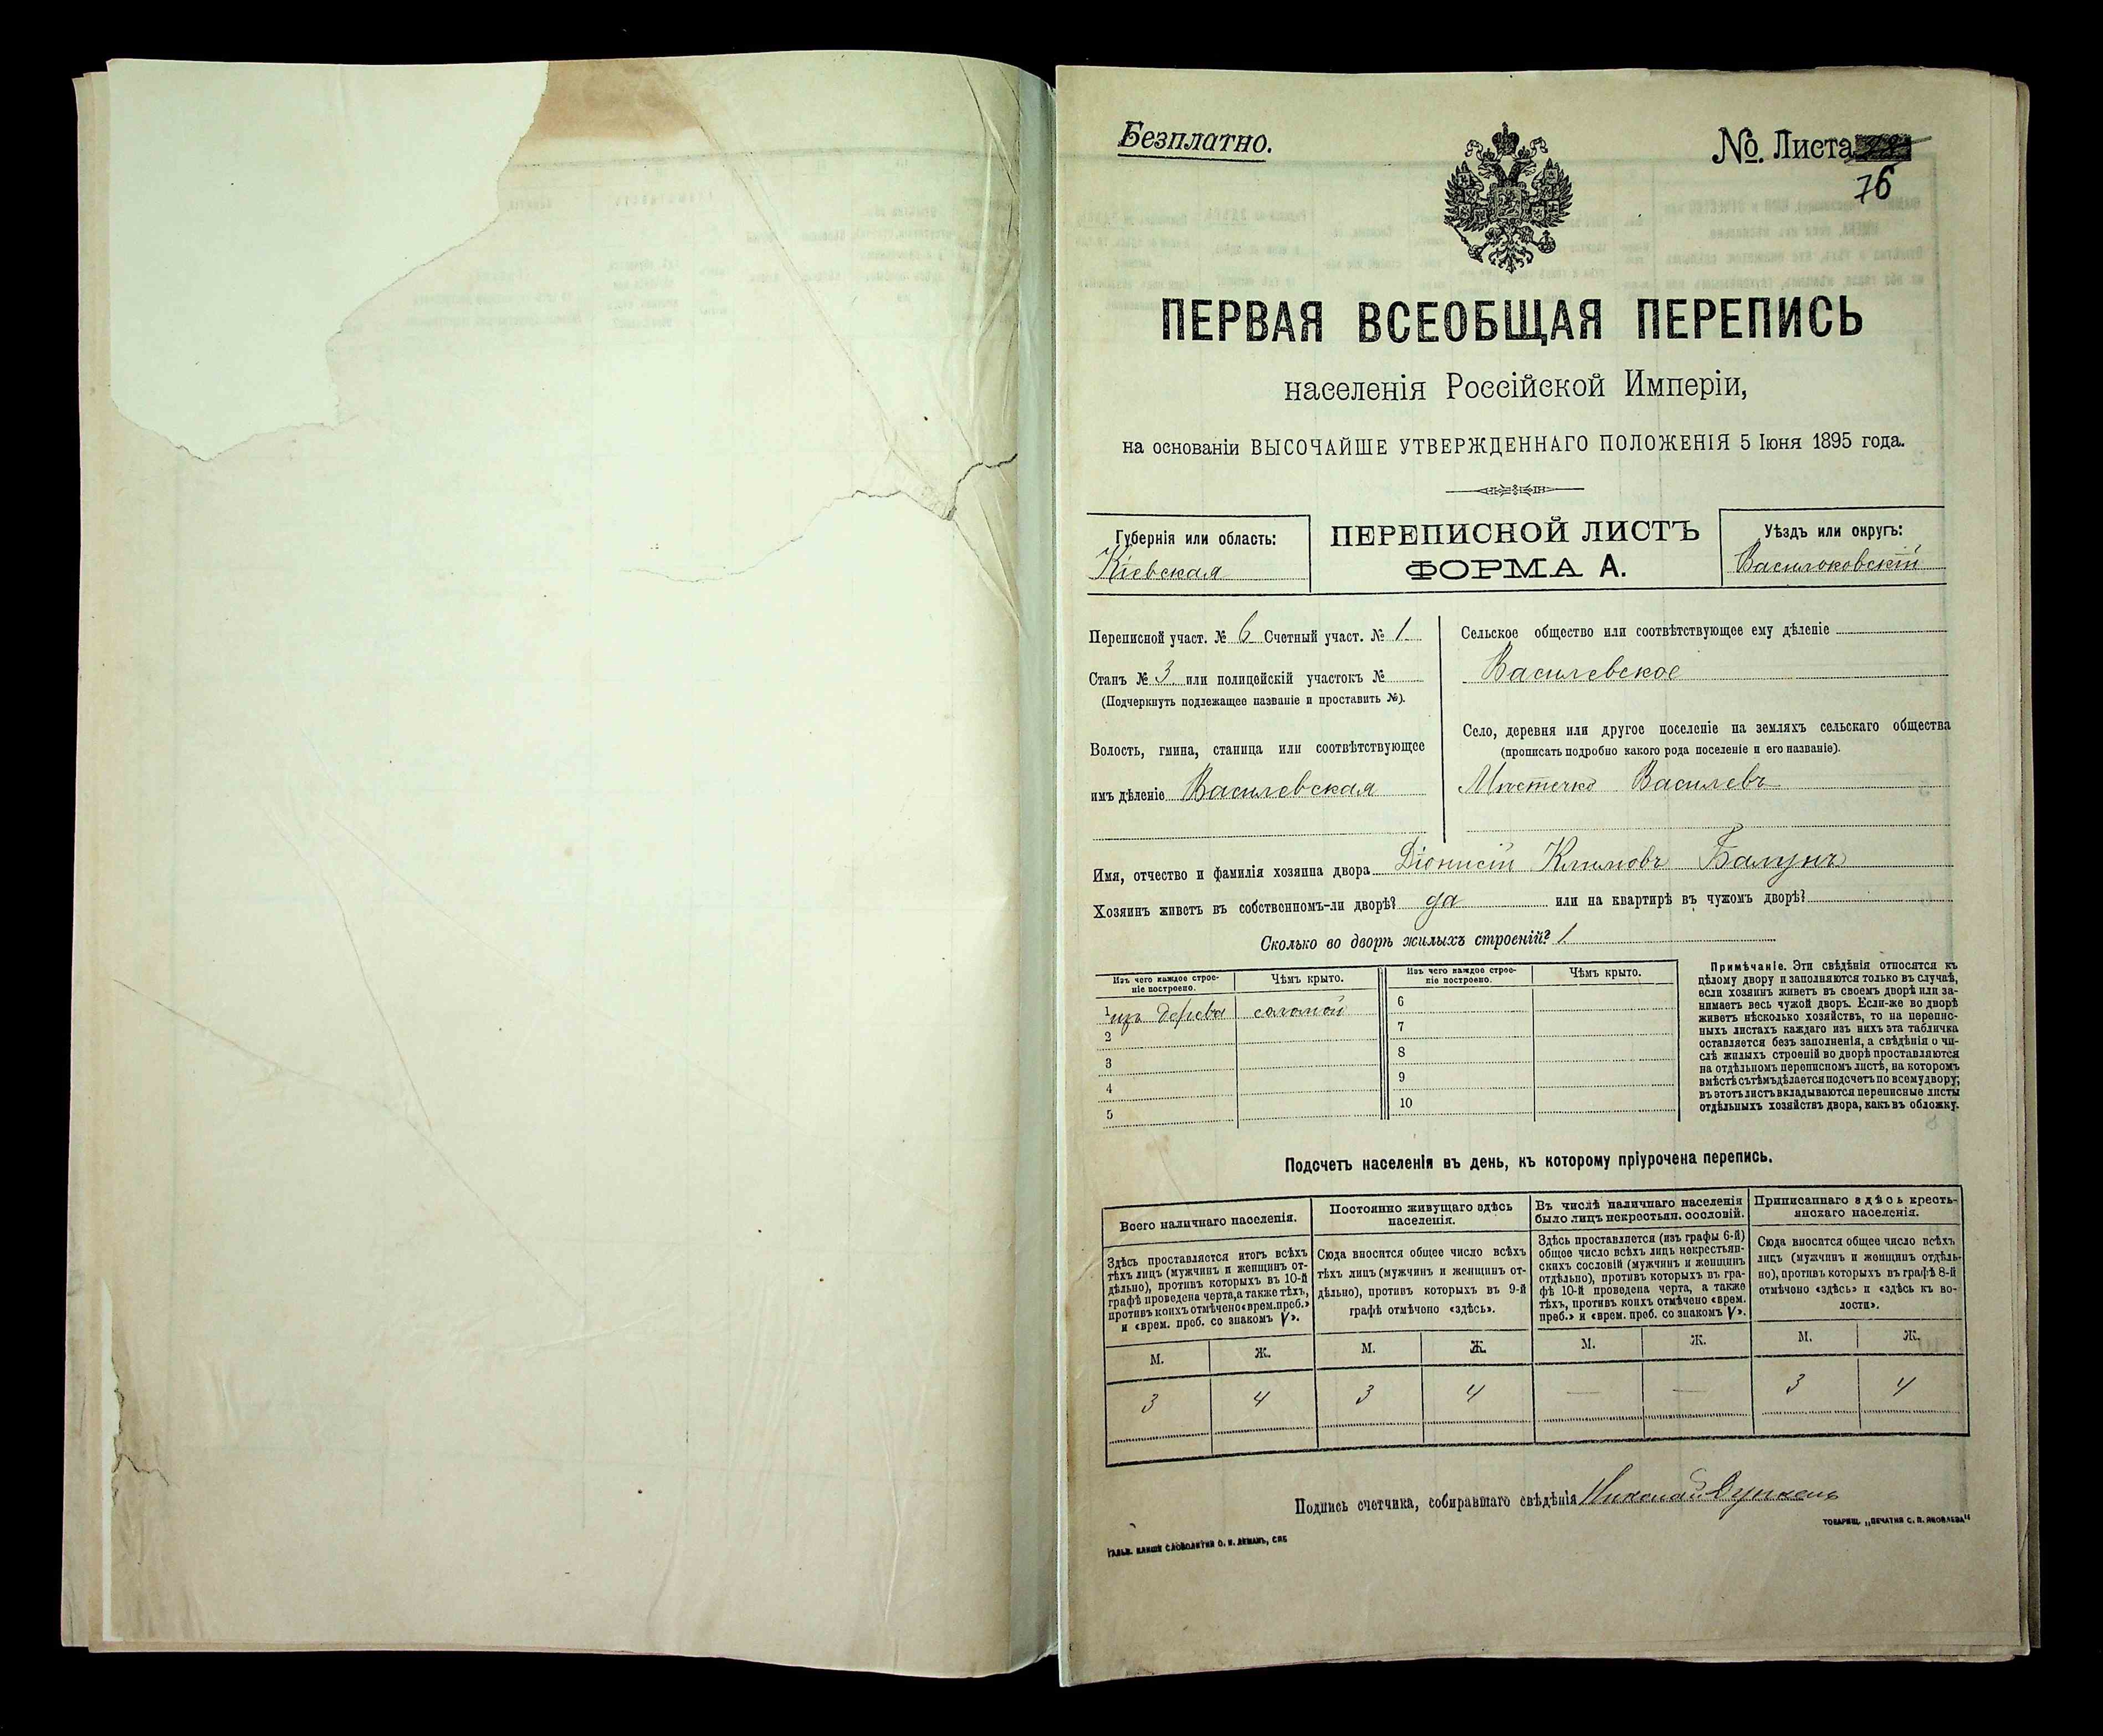 Безплатно.
№ Листа
76
ПЕРВАЯ ВСЕОБЩАЯ ПЕРЕПИСЬ
населенія Россійской Имперіи,
на основаніи ВЫСОЧАЙШЕ УТВЕРЖДЕННАГО ПОЛОЖЕНІЯ 5 Іюня 1895 года.
Губернія или область:
Кіевская
ПЕРЕПИСНОЙ ЛИСТЪ
ФОРМА А.
Уѣздъ или округъ:
Васильковскій
Переписной участ. № 6 Счетный участ. № 1
Станъ № 3 или полицейскій участокъ №
(Подчеркнуть подлежащее названіе и проставить №).
Волость, гмина, станица или соотвѣтствующее
имъ дѣленіе Василевская
Сельское общество или соотвѣтствующее ему дѣленіе
Василевское
Село, деревня или другое поселеніе на земляхъ сельскаго общества
(прописать подробно какого рода поселеніе и его названіе).
Мѣстечко Василевъ
Имя, отчество и фамилія хозяина двора Діонисій Климовъ
Хозяинъ живетъ въ собственномъ-ли дворѣ? да или на квартирѣ въ чужомъ дворѣ?
Сколько во дворѣ жилыхъ строеній? 1
Изъ чего каждое строе-
ніе построено.
Чѣмъ крыто.
Изъ чего каждое строе-
ніе построено.
Чѣмъ крыто.
1 изъ дерева соломой 6
2 7
3 8
4 9
5 10
Примѣчаніе. Эти свѣдѣнія относятся къ
цѣлому двору и заполняются только въ случаѣ,
если хозяинъ живетъ въ своемъ дворѣ или за-
нимаетъ весь чужой дворъ. Если-же во дворѣ
живетъ нѣсколько хозяйствъ, то на перепис-
ныхъ листахъ каждаго изъ нихъ эта табличка
оставляется безъ заполненія, а свѣдѣнія о чи-
слѣ жилыхъ строеній во дворѣ проставляются
на отдѣльномъ переписномъ листѣ, на которомъ
вмѣстѣ съ тѣмъ дѣлается подсчетъ по всему двору;
въ этотъ листъ вкладываются переписные листы
отдѣльныхъ хозяйствъ двора, какъ въ обложку.
Подсчетъ населенія въ день, къ которому пріурочена перепись.
Всего наличнаго населенія.
Здѣсь проставляется итогъ всѣхъ
тѣхъ лицъ (мужчинъ и женщинъ от-
дѣльно), противъ которыхъ въ 10-й
графѣ проведена черта, а также тѣхъ,
противъ коихъ отмѣчено «врем. преб.»
и «врем. преб. со знакомъ V».
Постоянно живущаго здѣсь
населенія.
Сюда вносится общее число всѣхъ
тѣхъ лицъ (мужчинъ и женщинъ от-
дѣльно), противъ которыхъ въ 9-й
графѣ отмѣчено «здѣсь».
Въ числѣ наличнаго населенія
было лицъ некрестьян. сословій.
Здѣсь проставляется (изъ графы 6-й)
общее число всѣхъ лицъ некрестьян-
скихъ сословій (мужчинъ и женщинъ
отдѣльно), противъ которыхъ въ гра-
фѣ 10-й проведена черта, а также
тѣхъ, противъ коихъ отмѣчено «врем.
преб.» и «врем. преб. со знакомъ V».
Приписаннаго здѣсь кресть-
янскаго населенія.
Сюда вносится общее число всѣхъ
лицъ (мужчинъ и женщинъ отдѣль-
но), противъ которыхъ въ графѣ 8-й
отмѣчено «здѣсь» и «здѣсь къ во-
лости».
М. Ж. М. Ж. М. Ж. М. Ж.
3 4 3 4 — — 3 4
Подпись счетчика, собиравшаго свѣдѣнія Николай
ГАЛЬВ. КЛИШЕ СЛОВОЛИТНИ О. И. ЛЕМАНЪ, СПБ
ТОВАРИЩ. „ПЕЧАТНЯ С. П. ЯКОВЛЕВА"